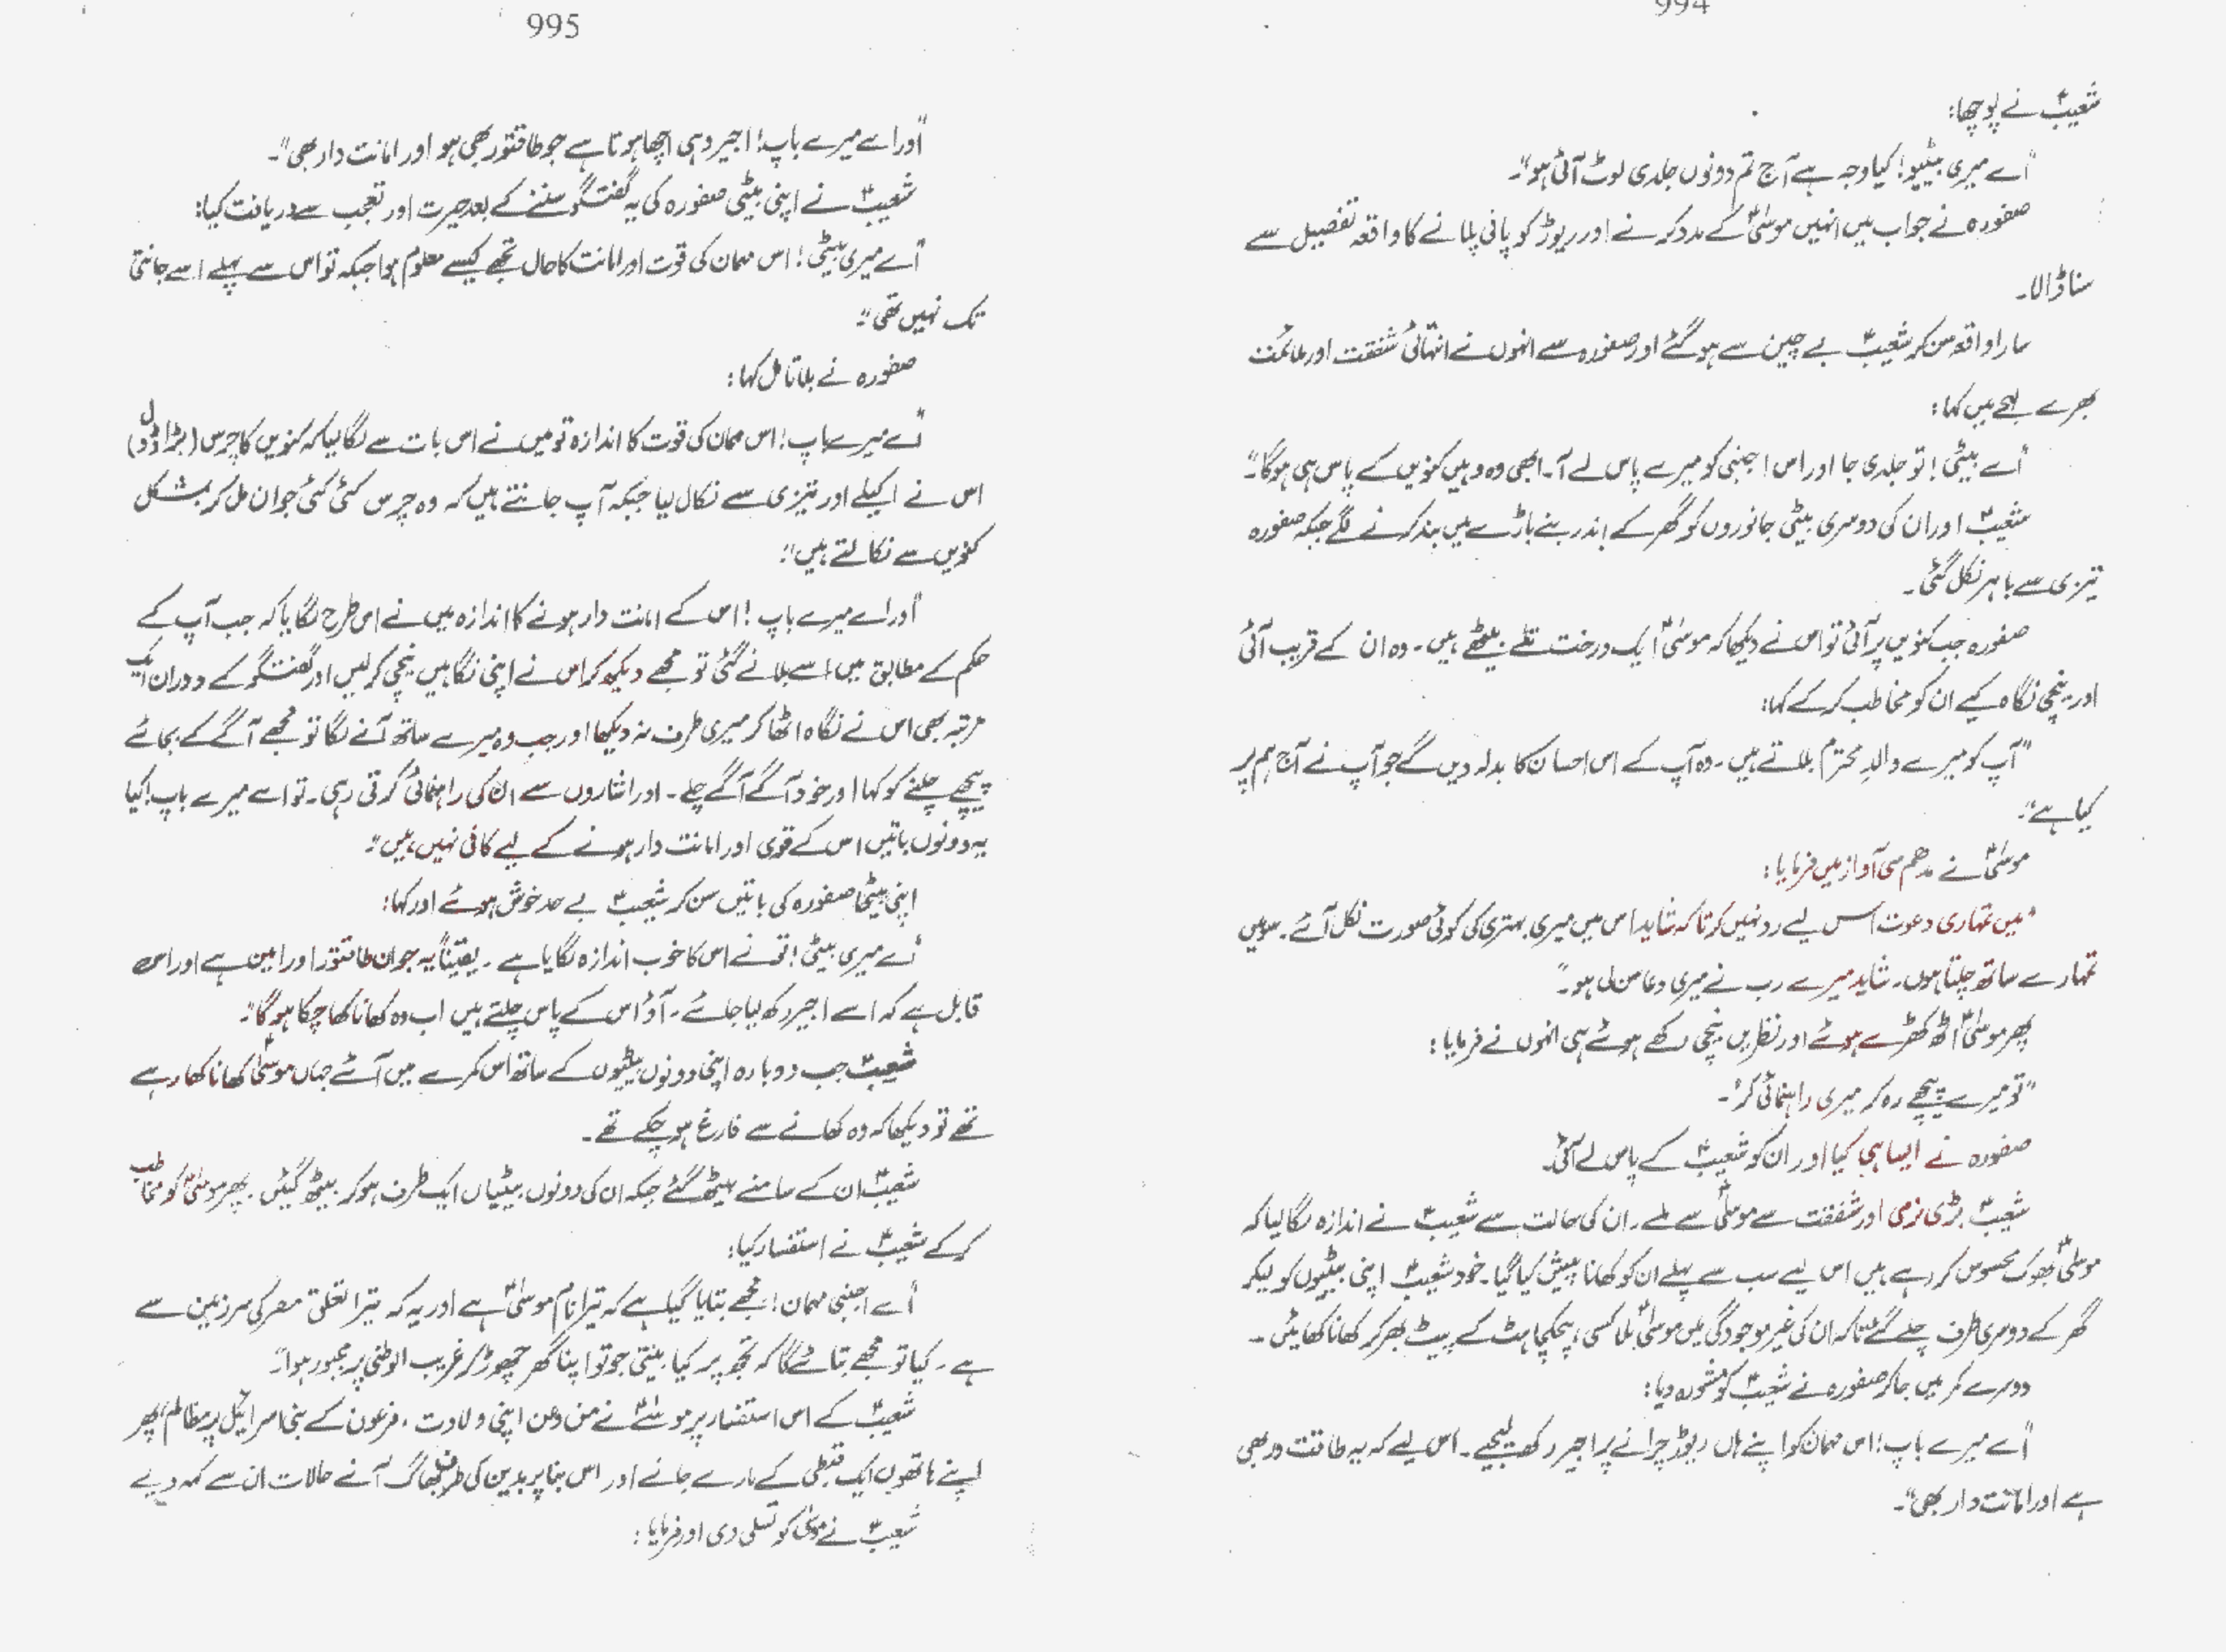 994
شعیبؑ نے پوچھا:
"اے میری بیٹیو! کیا وجہ ہے آج تم دونوں جلدی لوٹ آئی ہو"۔
صفورہ نے جواب میں انہیں موسیٰؑ کے مدد کرنے اور ریوڑ کو پانی پلانے کا واقعہ تفصیل سے
سنا ڈالا۔
سارا واقعہ سن کر شعیبؑ بے چین سے ہو گئے اور صفورہ سے انہوں نے انتہائی شفقت اور ملائمت
بھرے لہجے میں کہا:
"اے بیٹی! تو جلدی جا اور اس اجنبی کو میرے پاس لے آ۔ ابھی وہ وہیں کنویں کے پاس ہی ہوگا"۔
شعیبؑ اور ان کی دوسری بیٹی جانوروں کو گھر کے اندر بنے باڑے میں بند کرنے لگے جبکہ صفورہ
تیزی سے باہر نکل گئی۔
صفورہ جب کنویں پر آئی تو اس نے دیکھا کہ موسیٰؑ ایک درخت تلے بیٹھے ہیں۔ وہ ان کے قریب آئی
اور نیچی نگاہ کیے ان کو مخاطب کر کے کہا:
"آپ کو میرے والدِ محترم بلاتے ہیں۔ وہ آپ کے اس احسان کا بدلہ دیں گے جو آپ نے آج ہم پر
کیا ہے"۔
موسیٰؑ نے مدھم سی آواز میں فرمایا:
"میں تمہاری دعوت اس لیے رد نہیں کرتا کہ شاید اس میں میری بہتری کی کوئی صورت نکل آئے۔ سو میں
تمہارے ساتھ چلتا ہوں۔ شاید میرے رب نے میری دعا سن لی ہو۔"
پھر موسیٰؑ اٹھ کھڑے ہوئے اور نظریں نیچی رکھے ہوئے ہی انہوں نے فرمایا:
"تو میرے پیچھے رہ کر میری راہنمائی کر"۔
صفورہ نے ایسا ہی کیا اور ان کو شعیبؑ کے پاس لے آئی۔
شعیبؑ بڑی نرمی اور شفقت سے موسیٰؑ سے ملے۔ ان کی حالت سے شعیبؑ نے اندازہ لگا لیا کہ
موسیٰؑ بھوک محسوس کر رہے ہیں اس لیے سب سے پہلے ان کو کھانا پیش کیا گیا۔ خود شعیبؑ اپنی بیٹیوں کو لیکر
گھر کے دوسری طرف چلے گئے تاکہ ان کی غیر موجودگی میں موسیٰؑ بلا کسی ہچکچاہٹ کے پیٹ بھر کر کھانا کھائیں۔
دوسرے کمر میں جا کر صفورہ نے شعیبؑ کو مشورہ دیا:
"اے میرے باپ! اس مہمان کو اپنے ہاں ریوڑ چرانے پر اجیر رکھ لیجیے۔ اس لیے کہ یہ طاقت ور بھی
ہے اور امانت دار بھی"۔
995
"اور اے میرے باپ! اجیر وہی اچھا ہوتا ہے جو طاقتور بھی ہو اور امانت دار بھی"۔
شعیبؑ نے اپنی بیٹی صفورہ کی یہ گفتگو سننے کے بعد حیرت اور تعجب سے دریافت کیا:
"اے میری بیٹی! اس مہمان کی قوت اور امانت کا حال تجھے کیسے معلوم ہوا جبکہ تو اس سے پہلے اسے جانتی
تک نہیں تھی"۔
صفورہ نے بلا تامل کہا:
"اے میرے باپ! اس مہمان کی قوت کا اندازہ تو میں نے اس بات سے لگا لیا کہ کنویں کا چرس (بڑا ڈول)
اس نے اکیلے اور تیزی سے نکال لیا جبکہ آپ جانتے ہیں کہ وہ چرس کئی کئی جوان مل کر بمشکل
کنویں سے نکالتے ہیں"۔
"اور اے میرے باپ! اس کے امانت دار ہونے کا اندازہ میں نے اس طرح لگایا کہ جب آپ کے
حکم کے مطابق میں اسے بلانے گئی تو مجھے دیکھ کر اس نے اپنی نگاہیں نیچی کر لیں اور گفتگو کے دوران ایک
مرتبہ بھی اس نے نگاہ اٹھا کر میری طرف نہ دیکھا اور جب وہ میرے ساتھ آنے لگا تو مجھے آگے کے بجائے
پیچھے چلنے کو کہا اور خود آگے آگے چلے۔ اور اشاروں سے ان کی راہنمائی کرتی رہی۔ تو اے میرے باپ! کیا
یہ دونوں باتیں اس کے قوی اور امانت دار ہونے کے لیے کافی نہیں ہیں"۔
اپنی بیٹی صفورہ کی باتیں سن کر شعیبؑ بے حد خوش ہوئے اور کہا:
"اے میری بیٹی! تو نے اس کا خوب اندازہ لگایا ہے۔ یقیناً یہ جوان طاقتور اور امین ہے اور اس
قابل ہے کہ اسے اجیر رکھ لیا جائے۔ آؤ اس کے پاس چلتے ہیں اب وہ کھانا کھا چکا ہوگا"۔
شعیبؑ جب دوبارہ اپنی دونوں بیٹیوں کے ساتھ اس کمرے میں آئے جہاں موسیٰؑ کھانا کھا رہے
تھے تو دیکھا کہ وہ کھانے سے فارغ ہو چکے تھے۔
شعیبؑ ان کے سامنے بیٹھ گئے جبکہ ان کی دونوں بیٹیاں ایک طرف ہو کر بیٹھ گئیں۔ پھر موسیٰؑ کو مخاطب
کر کے شعیبؑ نے استفسار کیا:
"اے اجنبی مہمان! مجھے بتایا گیا ہے کہ تیرا نام موسیٰؑ ہے اور یہ کہ تیرا تعلق مصر کی سرزمین سے
ہے۔ کیا تو مجھے بتائے گا کہ تجھ پر کیا بیتی جو تو اپنا گھر چھوڑ کر غریب الوطنی پر مجبور ہوا"۔
شعیبؑ کے اس استفسار پر موسیٰؑ نے من و عن اپنی ولادت، فرعون کے بنی اسرائیل پر مظالم، پھر
اپنے ہاتھوں ایک قبطی کے مارے جانے اور اس بنا پر مدین کی طرف بھاگ آنے حالات ان سے کہہ دیے
شعیبؑ نے موسیٰؑ کو تسلی دی اور فرمایا: